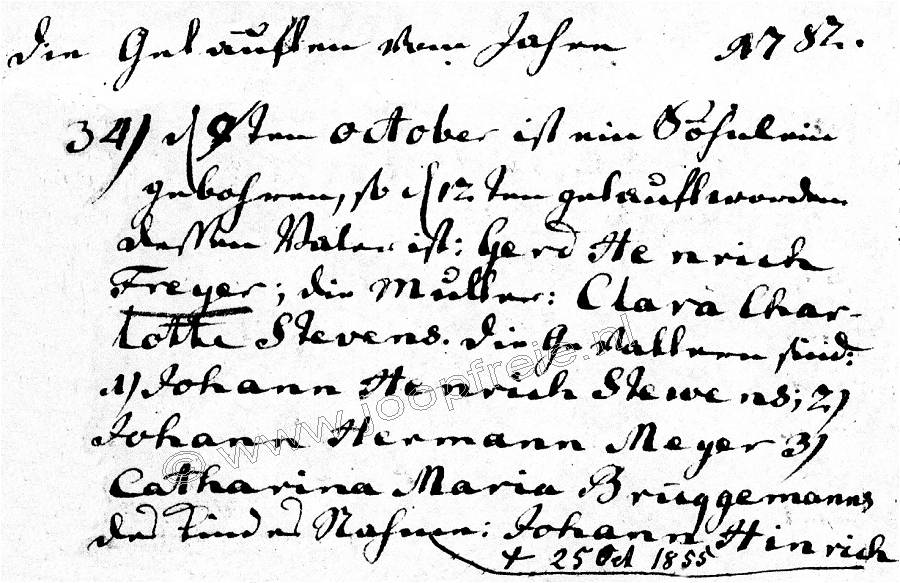 die Getauften vom Jahre 1782.
34) d 9ten october ist ein Söhnlein
gebohren, so d 12ten getauft worden
dessen Vater ist: Gerd Henrich
Freyer; die Mutter: Clara Char-
lotte Stevens. die Gevattern sind:
1) Johann Henrich Stewens; 2)
Johann Hermann Meyer 3)
Catharina Maria Brüggemanns
des Kindes Nahme: Johann Hinrich
+ 25 Oct 1855
© www.joopfreie.nl